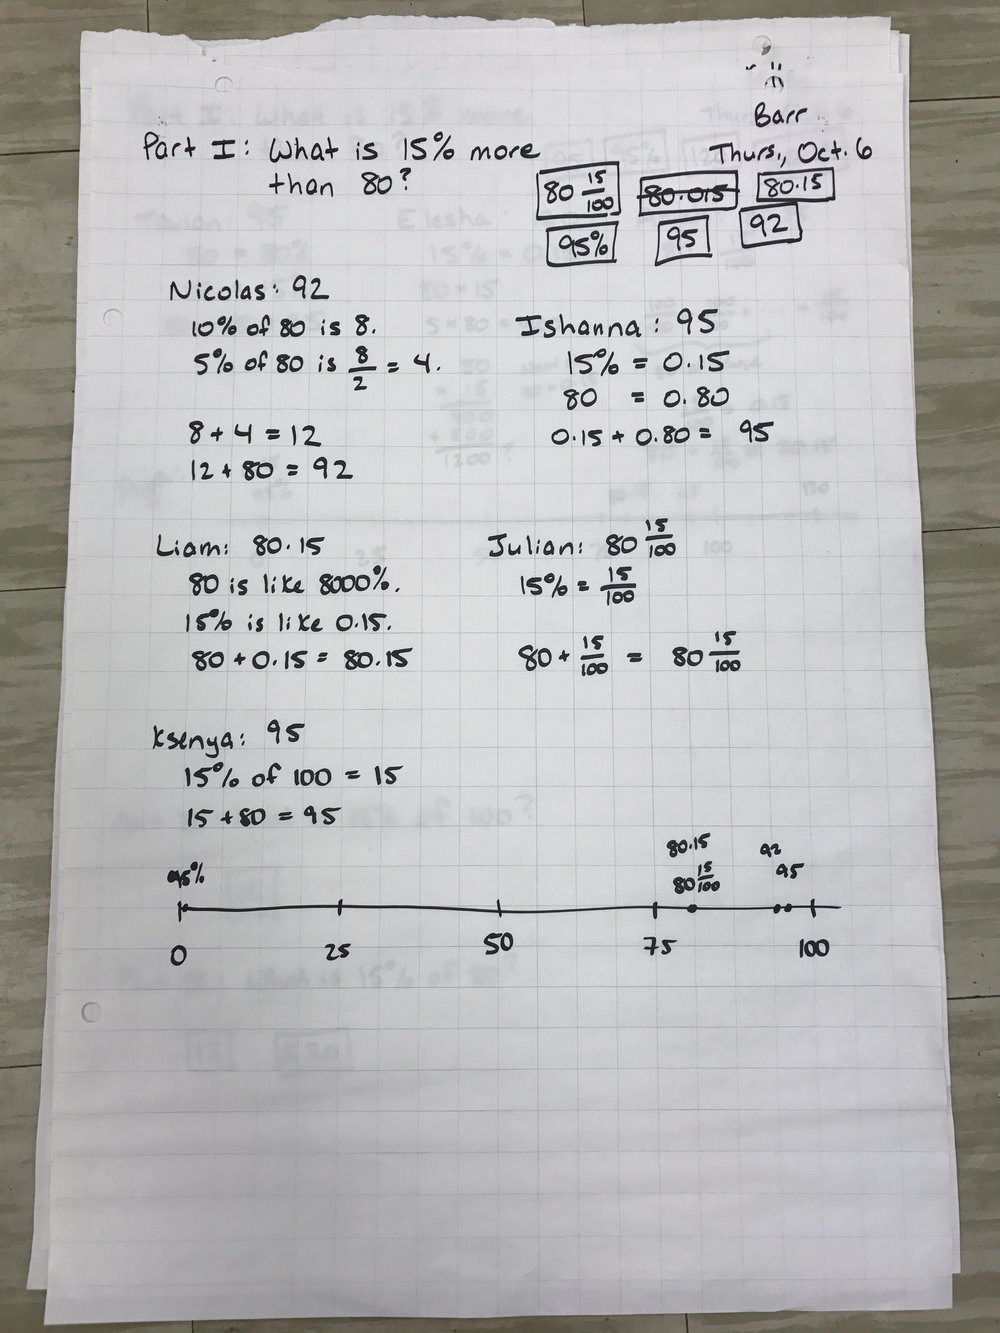 Barr
Thurs., Oct. 6
Part I: What is 15% more
than 80?
80 15/100
80.015
80.15
95%
95
92
Nicolas: 92
10% of 80 is 8.
5% of 80 is 8/2 = 4.
8 + 4 = 12
12 + 80 = 92
Ishanna: 95
15% = 0.15
80 = 0.80
0.15 + 0.80 = 95
Liam: 80.15
80 is like 8000%.
15% is like 0.15.
80 + 0.15 = 80.15
Julian: 80 15/100
15% = 15/100
80 + 15/100 = 80 15/100
Ksenya: 95
15% of 100 = 15
15 + 80 = 95
80.15
92
95%
80 15/100
95
0 25 50 75 100